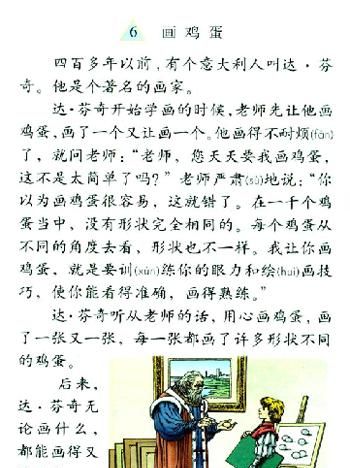 6 画鸡蛋
四百多年以前，有个意大利人叫达·芬
奇。他是个著名的画家。
达·芬奇开始学画的时候，老师先让他画
鸡蛋，画了一个又让画一个。他画得不耐烦(fán)
了，就问老师：“老师，您天天要我画鸡蛋，
这不是太简单了吗？”老师严肃(sù)地说：“你
以为画鸡蛋很容易，这就错了。在一千个鸡
蛋当中，没有形状完全相同的。每个鸡蛋从
不同的角度去看，形状也不一样。我让你画
鸡蛋，就是要训(xùn)练你的眼力和绘(huì)画技
巧，使你能看得准确，画得熟练。”
达·芬奇听从老师的话，用心画鸡蛋，画
了一张又一张，每一张都画了许多形状不同
的鸡蛋。
后来，
达·芬奇无
论画什么，
都能画得又